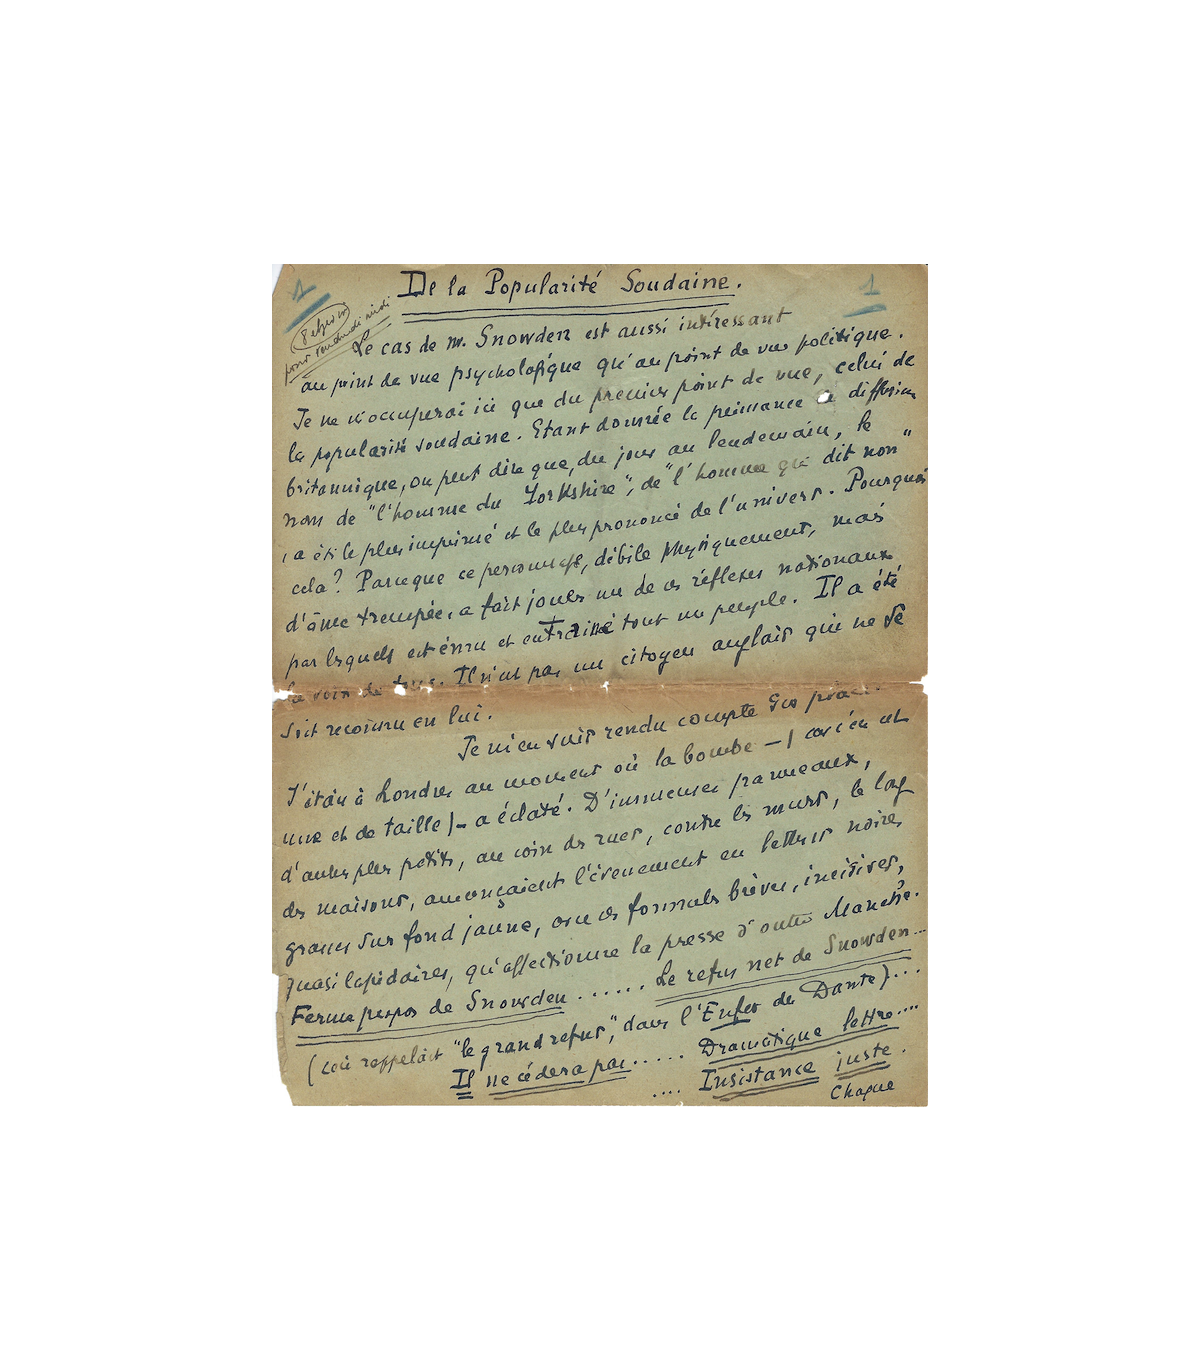 De la Popularité Soudaine.
1
1
pour vendredi midi
Le cas de M. Snowden est aussi intéressant
au point de vue psychologique qu'au point de vue politique.
Je ne m'occuperai ici que du premier point de vue, celui de
la popularité soudaine. Etant donnée la puissance de diffusion
britannique, on peut dire que, du jour au lendemain, le
nom de "l'homme du Yorkshire", de "l'homme qui dit non"
a été le plus imprimé et le plus prononcé de l'univers. Pourquoi
cela? Parce que ce personnage, débile physiquement, mais
d'âme trempée, a fait jouer un de ces réflexes nationaux
par lesquels est ému et entraîné tout un peuple. Il a été
la voix de tous. Il n'est pas un citoyen anglais qui ne se
soit reconnu en lui.
Je m'en suis rendu compte sur place.
J'étais à Londres au moment où la bombe — (car c'en est
une et de taille) — a éclaté. D'immenses panneaux,
d'autres plus petits, au coin des rues, contre les murs, le long
des maisons, annonçaient l'évènement en lettres noires
grasses sur fond jaune, avec ces formules brèves, incisives,
quasi lapidaires, qu'affectionne la presse d'outre Manche.
Ferme propos de Snowden ...... Le refus net de Snowden...
(ceci rappelait "le grand refus", dans l'Enfer de Dante)...
Il ne cédera pas..... Dramatique lettre....
.... Insistance juste.
Chaque